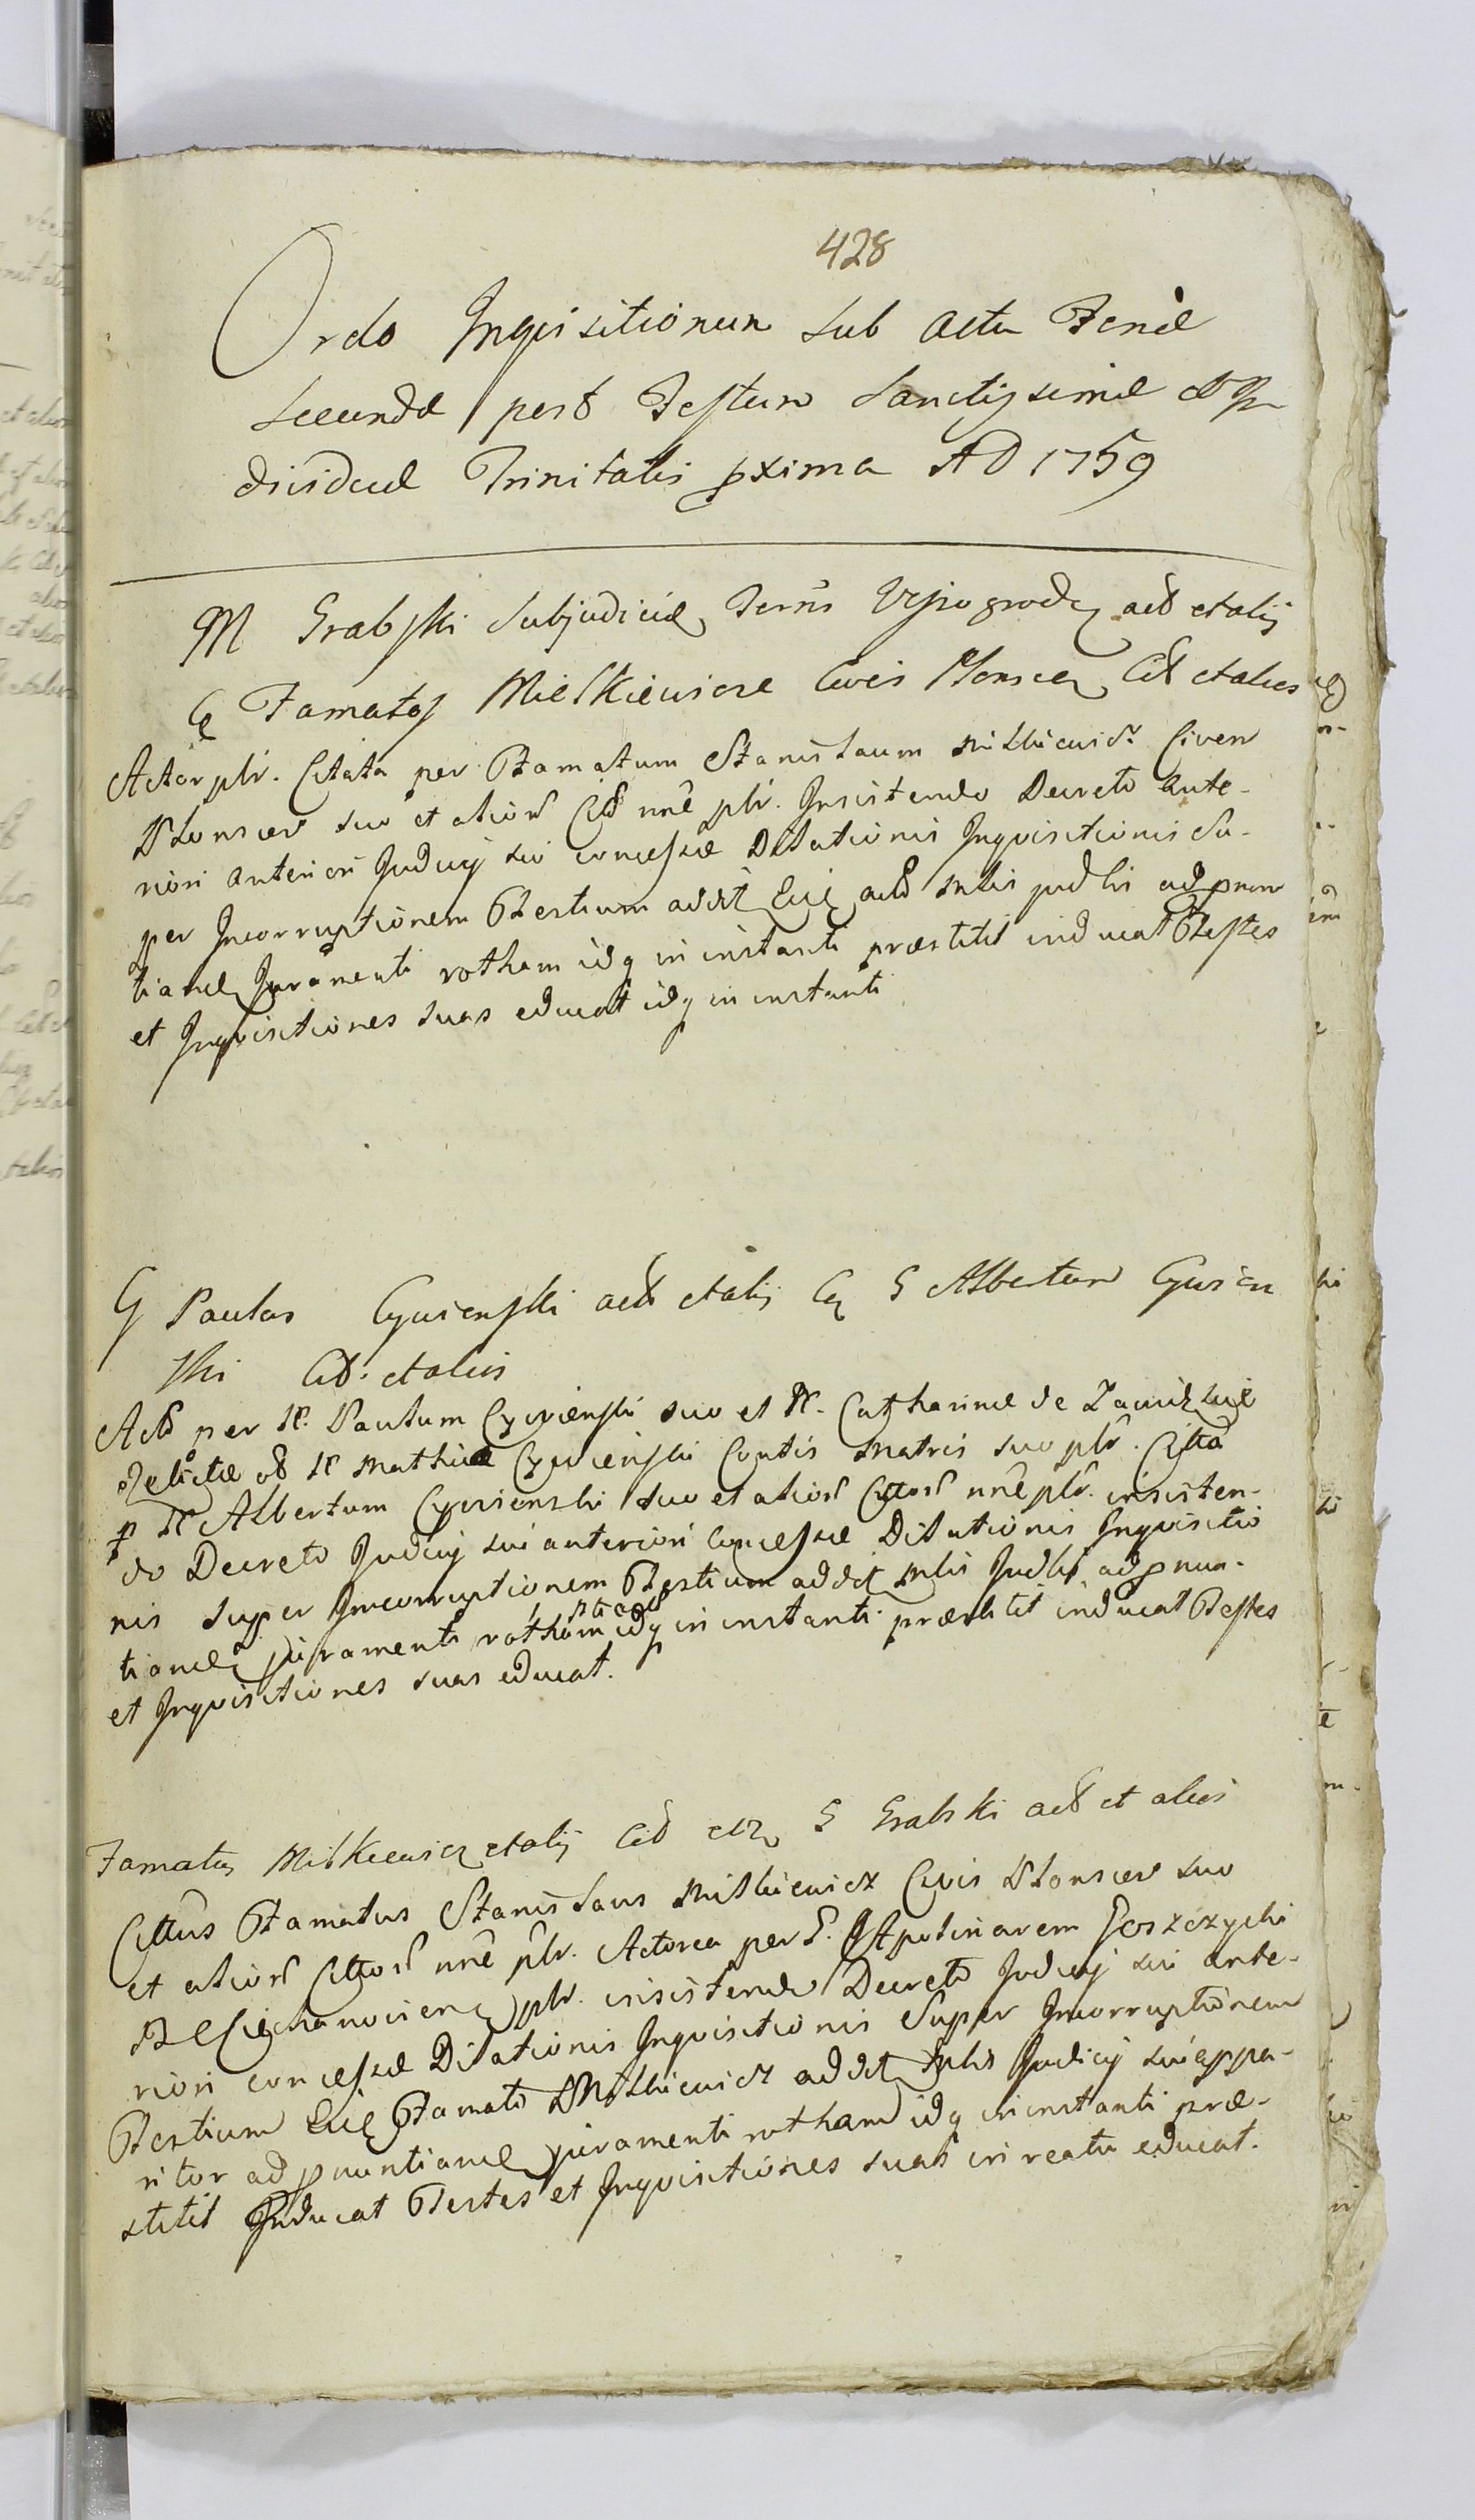 428
Ordo Inqvisitionum sub actu Feriæ
secundæ post Festum Sanctissimæ et
dividuæ Trinitatis pxima AD 1759
M Grabski Subjudicis Terris Wyszogroden act et alij
C Famatos Milkiewicze Cives Plonscen Cit et alios
Actor plr. Citata per Famatum Stanislaum Milkiewicz Civem
Plonscen suo et alior Cit nne plr. Insistendo Decreto ante-
riori anteriori Judicij sui concessæ Dilationis Inqvisitionis Su-
per Incorruptionem Testium addit Eiq act Mlis judlis ad pnun
tiand Juramenti rotham idq in instanti præstitit inducat Testes
et Inqvisitiones suas educat idq in instanti
G Paulus Cywienski act et alij C G Albertum Cywien
ski Cit. et alios
Act per N. Paulum Cywienski suo et N. Catharinæ de
Relictæ ol N Mathiæ Cywienski Contis Matris suo plr. Citta
p N Albertum Cywienski suo et alior Cittor nne plr. insisten-
do Decreto Judicij sui anteriori concessæ Dilationis Inqvisitio
nis super Incorruptionem Testium addit Mlis Judlis ad pnun-
tiand juramenti rotham idq in instanti præstitit inducat Testes
et Inqvisitiones suas educat.
Famatus Milkiewicz et alij Cit G Grabski act et alios
Cittus Famatus Stanislaus Milkiewicz Civis Plonscen suo
et alior Cittor nne plr. Actorea per G. Apolinarem Goszczycki
B Ciechanovien plr. insistendo Decreto Judicij sui ante-
riori concessæ Dilationis Inqvisitionis Super Incorruptionem
Testium Eiq Famato Milkiewicz addit Mlis Judicij sui appa-
ritor ad pnuntiand juramenti rotham idq in instanti præ-
stitit Inducat Testes et Inqvisitiones suas in reatu educat.